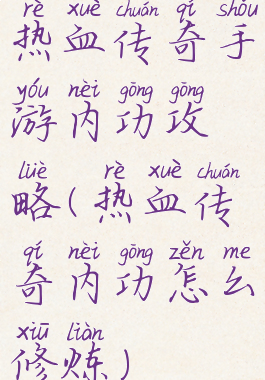 rè xuè chuán qí shǒu
热血传奇手
yóu nèi gōng gōng
游内功攻
lüè rè xuè chuán
略(热血传
qí nèi gōng zěn me
奇内功怎么
xiū liàn
修炼)